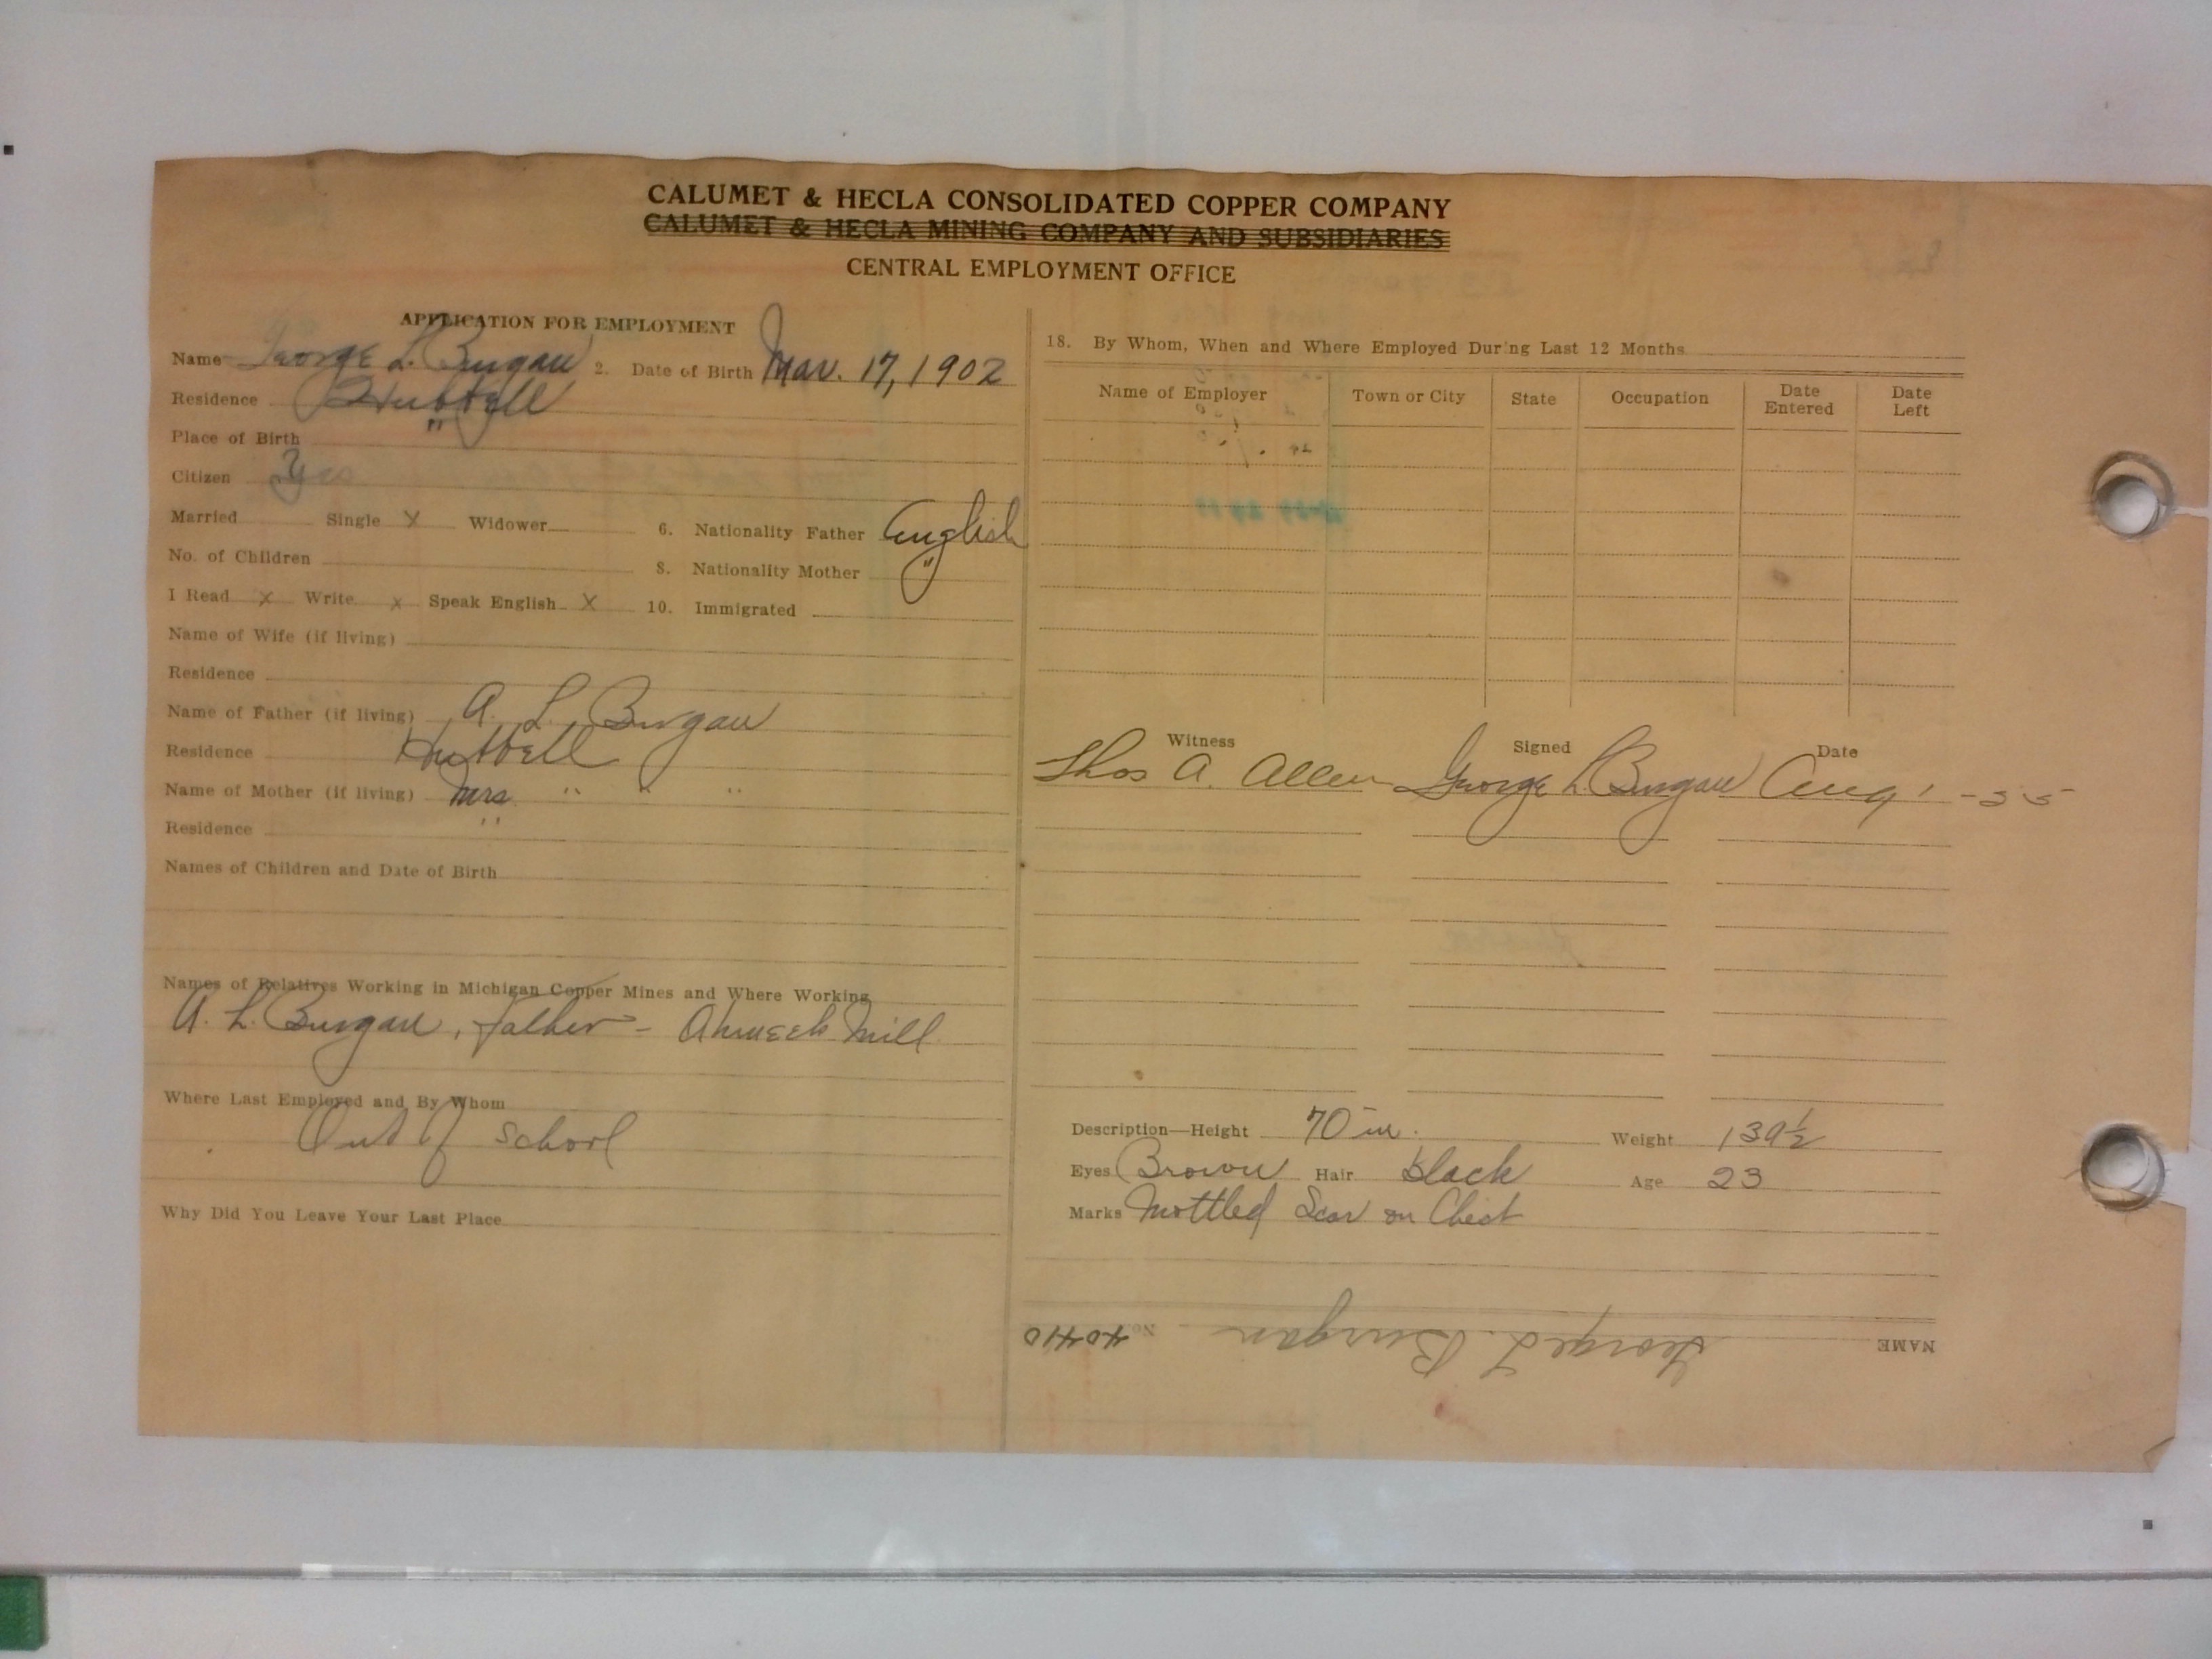 CALUMET & HECLA CONSOLIDATED COPPER COMPANY
CALUMET & HECLA MINING COMPANY AND SUBSIDIARIES
CENTRAL EMPLOYMENT OFFICE
APPLICATION FOR EMPLOYMENT
Name George L. Burgan 2. Date of Birth Mar. 17, 1902
Residence Hubbell
Place of Birth "
Citizen Yes
Married Single X Widower 6. Nationality Father English
No. of Children 8. Nationality Mother "
I Read x Write x Speak English X 10. Immigrated
Name of Wife (if living)
Residence
Name of Father (if living) A. L. Burgan
Residence Hubbell
Name of Mother (if living) Mrs. " " "
Residence "
Names of Children and Date of Birth
Names of Relatives Working in Michigan Copper Mines and Where Working
A. L. Burgan, father - Ahmeek Mill
Where Last Employed and By Whom
Out of school
Why Did You Leave Your Last Place
18. By Whom, When and Where Employed During Last 12 Months
Name of Employer Town or City State Occupation Date Entered Date Left
Witness Signed Date
Thos A. Allen George L. Burgan Aug
Description—Height 70 in. Weight 139½
Eyes Brown Hair black Age 23
Marks Mottled Scar on Chest
NAME George L. Burgan No. 40410